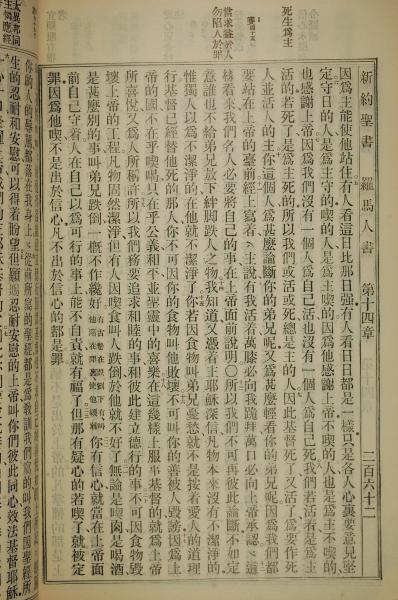 新約聖書　羅馬人書　第十四章　三百六十二
死生爲主
當求益於人
勿陷人於罪
因爲主能使他站住有人看這日比那日強有人看日日都是一樣只是各人心裏要意見堅
定守日的人是爲主守的喫的人是爲主喫的因他感謝上帝不喫的人也是爲主不喫的
也感謝上帝因爲我們沒有一個人爲自己活也沒有一個人爲自己死我們若活着是爲主
活的若死了是爲主死的所以我們或活或死總是主的人因此基督死了又活了爲要作死
人並活人的主你這個人爲甚麽論斷你的弟兄呢又爲甚麽輕看你的弟兄呢因爲我們都
要站在上帝的臺前經上寫着主說有我活着萬膝必向我跪拜萬口必向上帝承認這
樣看來我們各人必要將自己的事在上帝面前說明○所以我們不可再彼此論斷不如定
意誰也不給弟兄放下絆脚跌人之物我知道又憑着主耶穌深信凡物本來沒有不潔淨的
惟獨人以爲不潔淨的在他就不潔淨了你若因食物叫弟兄憂愁就不是按着愛人的道理
行基督已經替他死的那人你不可因你的食物叫他敗壞不可叫你的善被人毀謗因爲上
帝的國不在乎喫喝只在乎公義和平並聖靈中的喜樂在這幾樣上服事基督的就爲上帝
所喜悅又爲人所稱許所以我們務要追求和睦的事和彼此建立德行的事不可因食物毀
壞上帝的工程凡物固然潔淨但有人因喫叫人跌倒於他就不好了無論是喫肉是喝酒
是甚麽別的事叫弟兄跌倒一概不作纔好你有信心就當在上帝面
前自己守着人在自己以爲可行的事上能不自責就有福了但那有疑心的若喫了就被定
罪因爲他喫不是出於信心凡不出於信心的都是罪
生的忍耐和安慰可以得着盼望但願賜忍耐安慰的上帝叫你們彼此同心效法基督耶穌